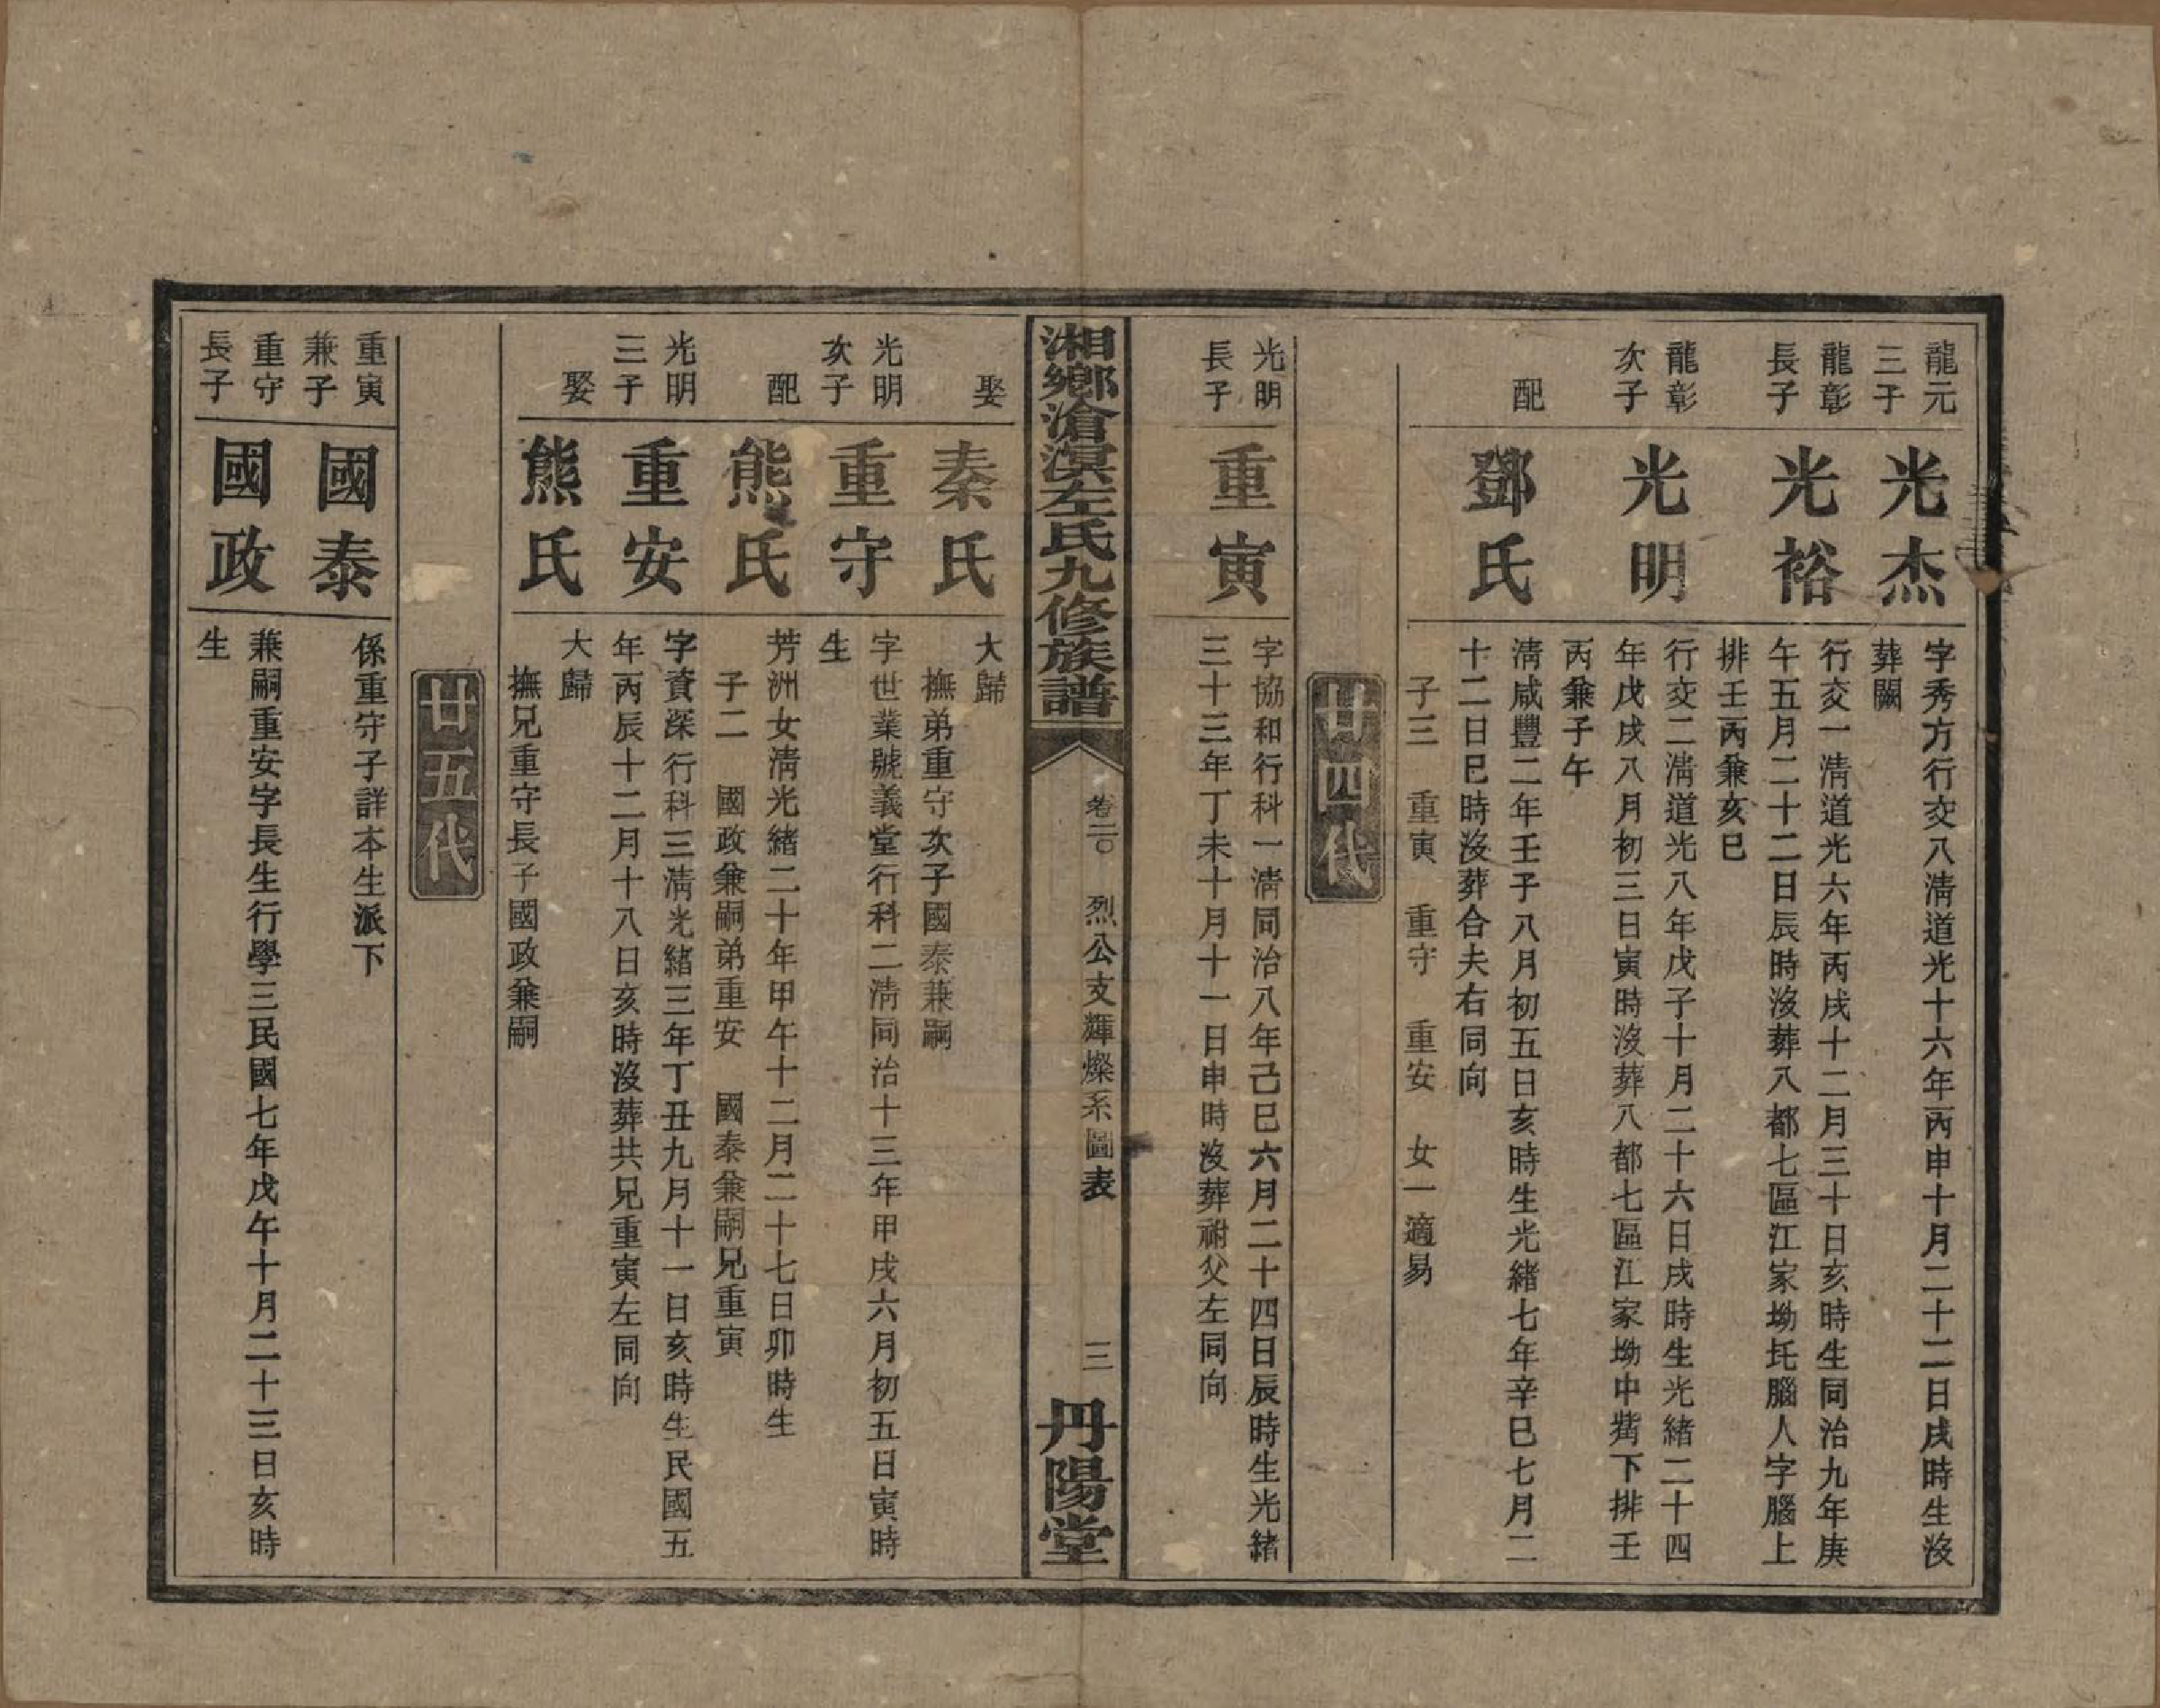 龍元
三子
光杰
字秀方行交八淸道光十六年丙申十月二十二日戌時生沒
葬闕
龍彰
長子
光裕
行交一淸道光六年丙戌十二月三十日亥時生同治九年庚
午五月二十二日辰時沒葬八都七區江家坳坵腦人字腦上
排壬丙兼亥巳
龍彰
次子
光明
行交二淸道光八年戊子十月二十六日戌時生光緒二十四
年戊戌八月初三日寅時沒葬八都七區江家坳中嘴下排壬
丙兼子午
配
鄧氏
淸咸豐二年壬子八月初五日亥時生光緒七年辛巳七月二
十二日巳時沒葬合夫右同向
子三　重寅　重守　重安　女一適易
廿四代
光明
長子
重寅
字協和行科一淸同治八年己巳六月二十四日辰時生光緒
三十三年丁未十月十一日申時沒葬祔父左同向
湘鄉滄溟左氏九修族譜
卷二〇　烈公支輝燦系圖表
三
丹陽堂
娶
秦氏
大歸
撫弟重守次子國泰兼嗣
光明
次子
重守
字世業號義堂行科二淸同治十三年甲戌六月初五日寅時
生
配
熊氏
芳洲女淸光緒二十年甲午十二月二十七日卯時生
子二　國政兼嗣弟重安　國泰兼嗣兄重寅
光明
三子
重安
字資深行科三淸光緒三年丁丑九月十一日亥時生民國五
年丙辰十二月十八日亥時沒葬共兄重寅左同向
娶
熊氏
大歸
撫兄重守長子國政兼嗣
廿五代
重寅
兼子
國泰
係重守子詳本生派下
重守
長子
國政
兼嗣重安字長生行學三民國七年戊午十月二十三日亥時
生